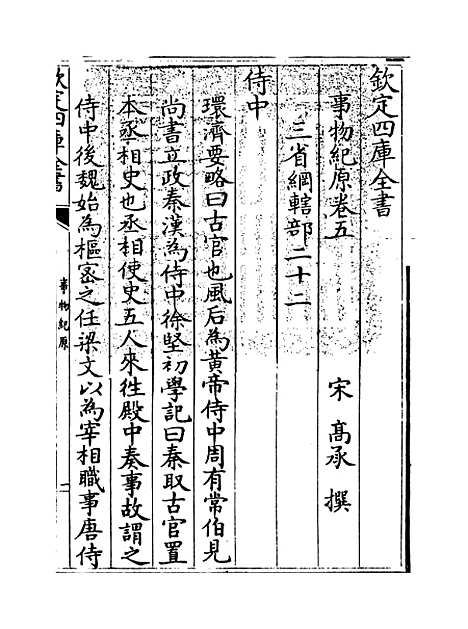 欽定四庫全書
事物紀原卷五
宋 高承 撰
三省綱轄部二十二
侍中
環濟要略曰古官也風后為黃帝侍中周有常伯見
尚書立政秦漢為侍中徐堅初學記曰秦取古官置
本丞相史也丞相使史五人來徃殿中奏事故謂之
侍中後魏始為樞密之任梁文以為宰相職事唐侍
欽定四庫全書
事物紀原